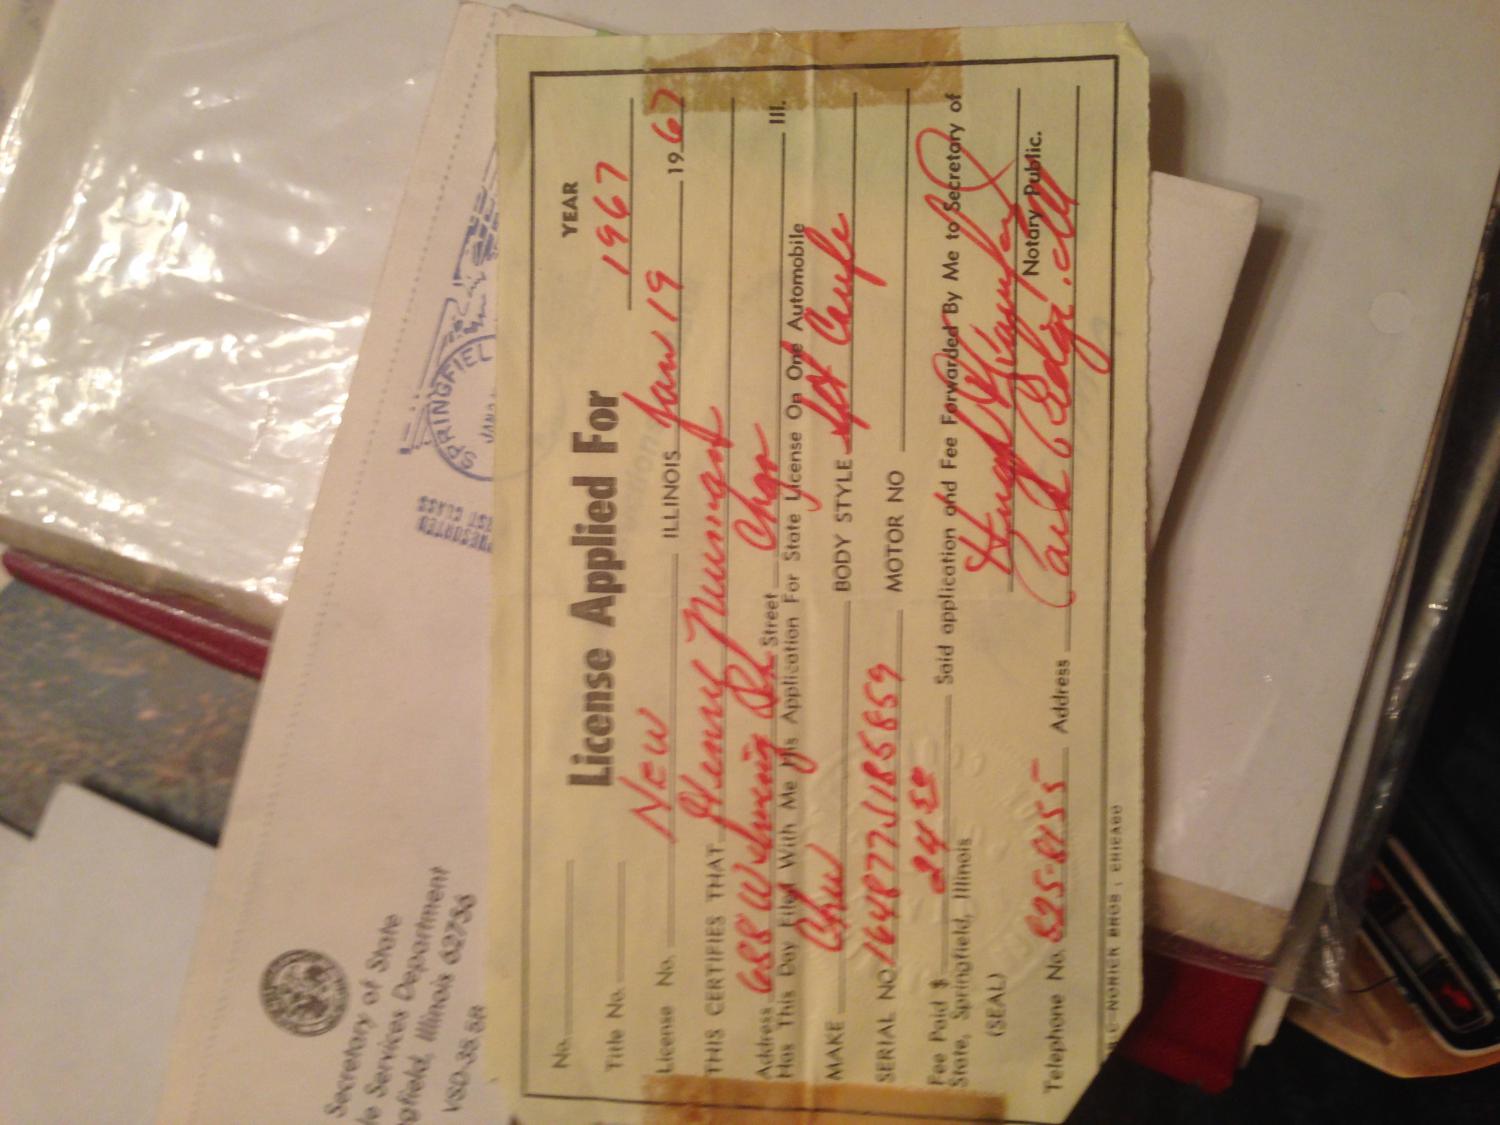 Secretary of State
le Services Department
gfield, Illinois 62756
VSD-35.5R
SPRINGFIEL
JAN
PRESORTED
FIRST CLASS
License Applied For
YEAR
1967
No.
Title No.
License No. New ILLINOIS Jan 19 1967
THIS CERTIFIES THAT Henry
Address 688 Street Chgo Ill.
Has This Day Filed With Me His Application For State License On One Automobile
MAKE Chev BODY STYLE Spt Coupe
SERIAL NO. 164877J185859 MOTOR NO
Fee Paid $ 24 Said application and Fee Forwarded By Me to Secretary of
State, Springfield, Illinois
(SEAL) Hugh
Notary Public.
Telephone No. 825-8155 Address
NORIER BROS., CHICAGO